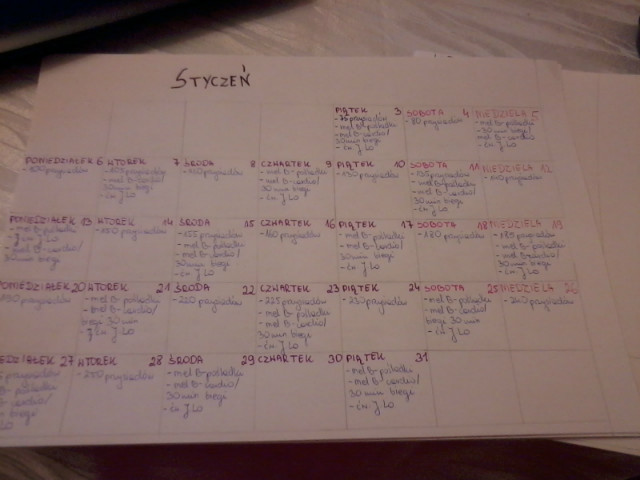 STYCZEŃ
PIĄTEK 3 SOBOTA 4 NIEDZIELA 5
- 75 przysiadów
- mel B - pośladki
- mel B - cardio/
30 min biegi
- ćw J LO
- 80 przysiadów
- mel B - pośladki
- mel B - cardio/
30 min biegi
- ćw J LO
PONIEDZIAŁEK 6 WTOREK 7 ŚRODA 8 CZWARTEK 9 PIĄTEK 10 SOBOTA 11 NIEDZIELA 12
- 100 przysiadów
- przysiadów
- mel B - pośladki
- mel B - cardio/
30 min biegi
- ćw J LO
- przysiadów
- mel B - pośladki
- mel B - cardio/
30 min biegi
- ćw J LO
- 130 przysiadów
- 135 przysiadów
- mel B - pośladki
- mel B - cardio/
30 min biegi
- ćw J LO
- 140 przysiadów
PONIEDZIAŁEK 13 WTOREK 14 ŚRODA 15 CZWARTEK 16 PIĄTEK 17 SOBOTA 18 NIEDZIELA 19
- mel B - pośladki
- ćw J LO
- mel B - cardio/
30 min biegi
- 150 przysiadów
- 155 przysiadów
- mel B - pośladki
- mel B - cardio/
30 min biegi
- ćw J LO
- 160 przysiadów
- mel B - pośladki
- mel B - cardio/
30 min biegi
- ćw J LO
- 180 przysiadów
- 185 przysiadów
- mel B - pośladki
- mel B - cardio/
30 min biegi
- ćw J LO
PONIEDZIAŁEK 20 WTOREK 21 ŚRODA 22 CZWARTEK 23 PIĄTEK 24 SOBOTA 25 NIEDZIELA 26
przysiadów
- mel B - pośladki
- mel B - cardio/
biegi 30 min
- ćw J LO
- 220 przysiadów
- 225 przysiadów
- mel B - pośladki
- mel B - cardio/
30 min biegi
- ćw J LO
- 230 przysiadów
- mel B - pośladki
- mel B - cardio/
biegi 30 min
- ćw J LO
- 240 przysiadów
EDZIAŁEK 27 WTOREK 28 ŚRODA 29 CZWARTEK 30 PIĄTEK 31
przysiadów
B - pośladki
B - cardio/
min biegi
J LO
- 250 przysiadów
- mel B - pośladki
- mel B - cardio/
30 min biegi
- ćw J LO
- mel B - pośladki
- mel B - cardio/
30 min biegi
- ćw J LO